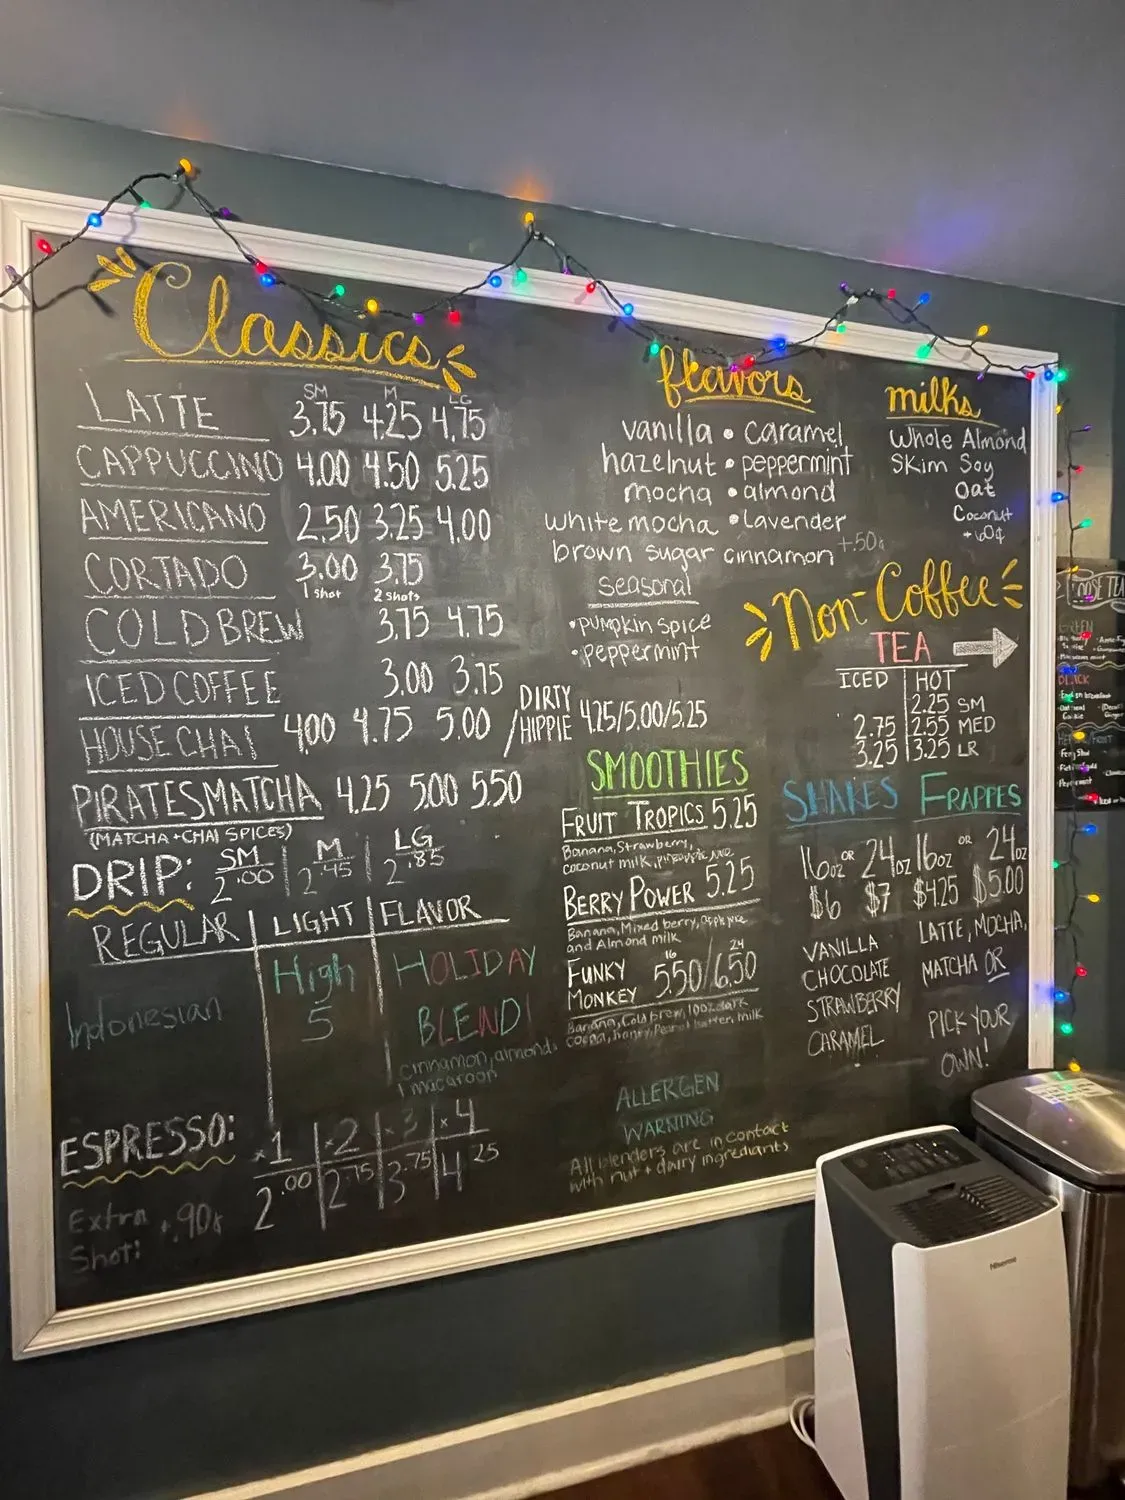 Classics
SM M LG
LATTE 3.75 4.25 4.75
CAPPUCCINO 4.00 4.50 5.25
AMERICANO 2.50 3.25 4.00
CORTADO 3.00 3.75
1 shot 2 shots
COLD BREW 3.75 4.75
ICED COFFEE 3.00 3.75
HOUSE CHAI 4.00 4.75 5.00 / DIRTY HIPPIE 4.25/5.00/5.25
PIRATES MATCHA 4.25 5.00 5.50
(MATCHA + CHAI SPICES)
DRIP: SM 2.00 | M 2.45 | LG 2.85
REGULAR | LIGHT | FLAVOR
Indonesian
High
5
HOLIDAY
BLEND!
cinnamon, almond,
macaroon
ESPRESSO: x1 x2 x3 x4
2.00 2.75 3.75 4.25
Extra Shot: +.90¢
flavors
vanilla • caramel
hazelnut • peppermint
mocha • almond
white mocha • lavender
brown sugar cinnamon +.50¢
seasonal
• pumpkin spice
• peppermint
SMOOTHIES
FRUIT TROPICS 5.25
Banana, Strawberry,
coconut milk, pineapple juice
BERRY POWER 5.25
Banana, Mixed berry, apple juice
and Almond milk
16 24
FUNKY MONKEY 5.50/6.50
Banana, Cold brew, 100% dark
cocoa, honey, Peanut butter, milk
ALLERGEN
WARNING
All blenders are in contact
with nut + dairy ingrediants
milks
Whole Almond
Skim Soy
Oat
Coconut
+60¢
Non-Coffee
TEA
ICED HOT
2.25 SM
2.75 2.55 MED
3.25 3.25 LR
SHAKES
16oz OR 24oz
$6 $7
VANILLA
CHOCOLATE
STRAWBERRY
CARAMEL
FRAPPES
16oz OR 24oz
$4.25 $5.00
LATTE, MOCHA,
MATCHA OR
PICK YOUR
OWN!
LOOSE TEA
GREEN
BLACK
Peppermint
Hisense